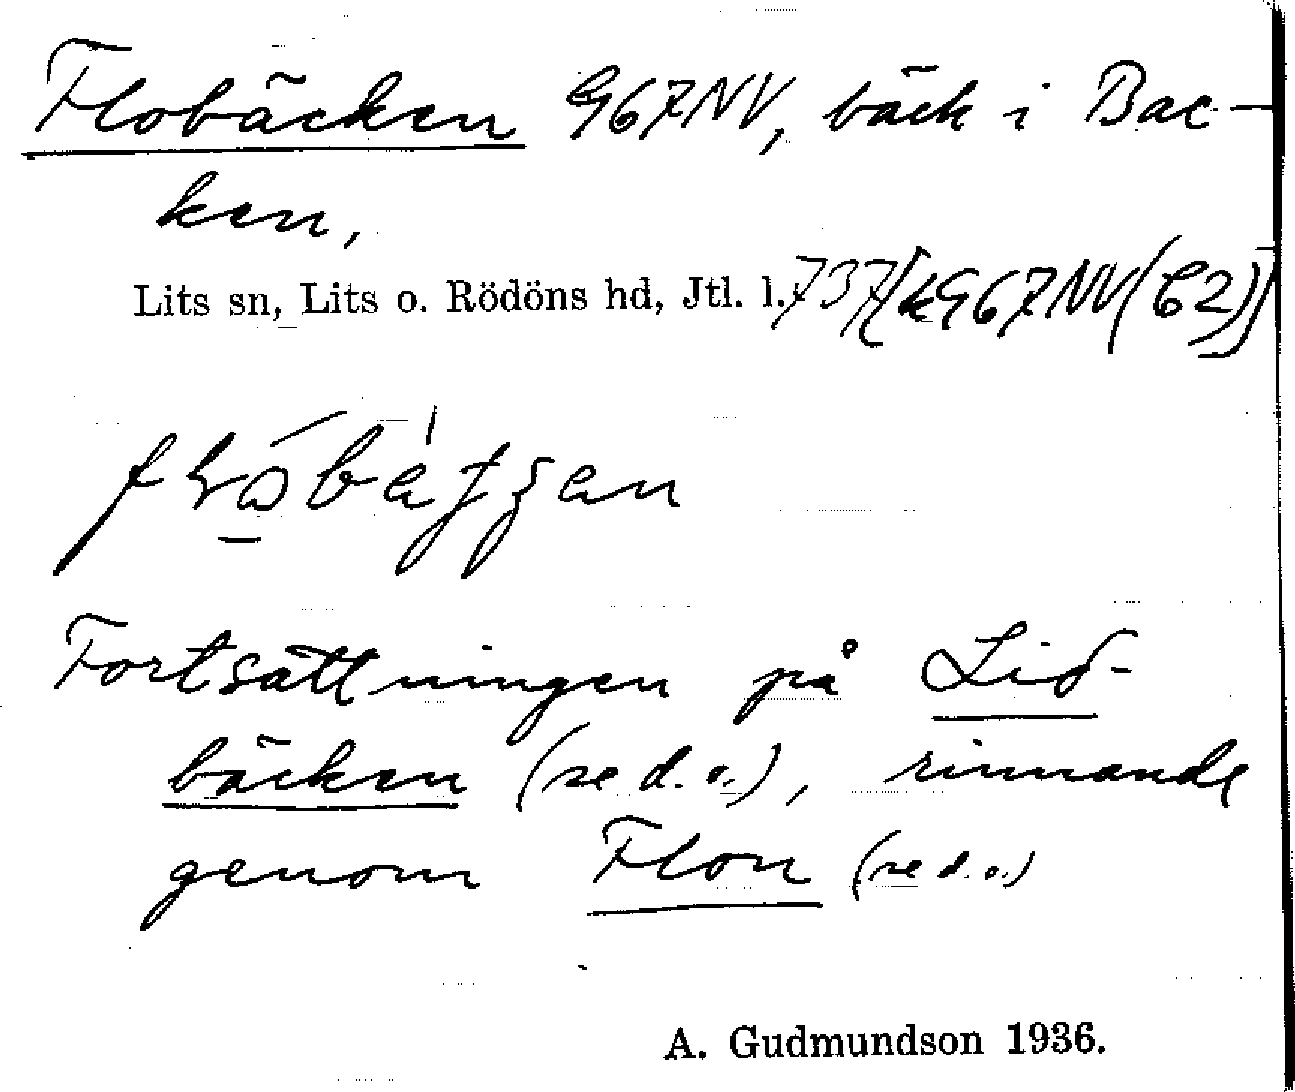 Flobäcken 967NV, bäck i Bac-
ken,
Lits sn, Lits o. Rödöns hd, Jtl. l. 737 [k967NV(C2)]
Fortsättningen på Lid-
bäcken (se d. o.), rinnande
genom Flon (se d. o.)
A. Gudmundson 1936.